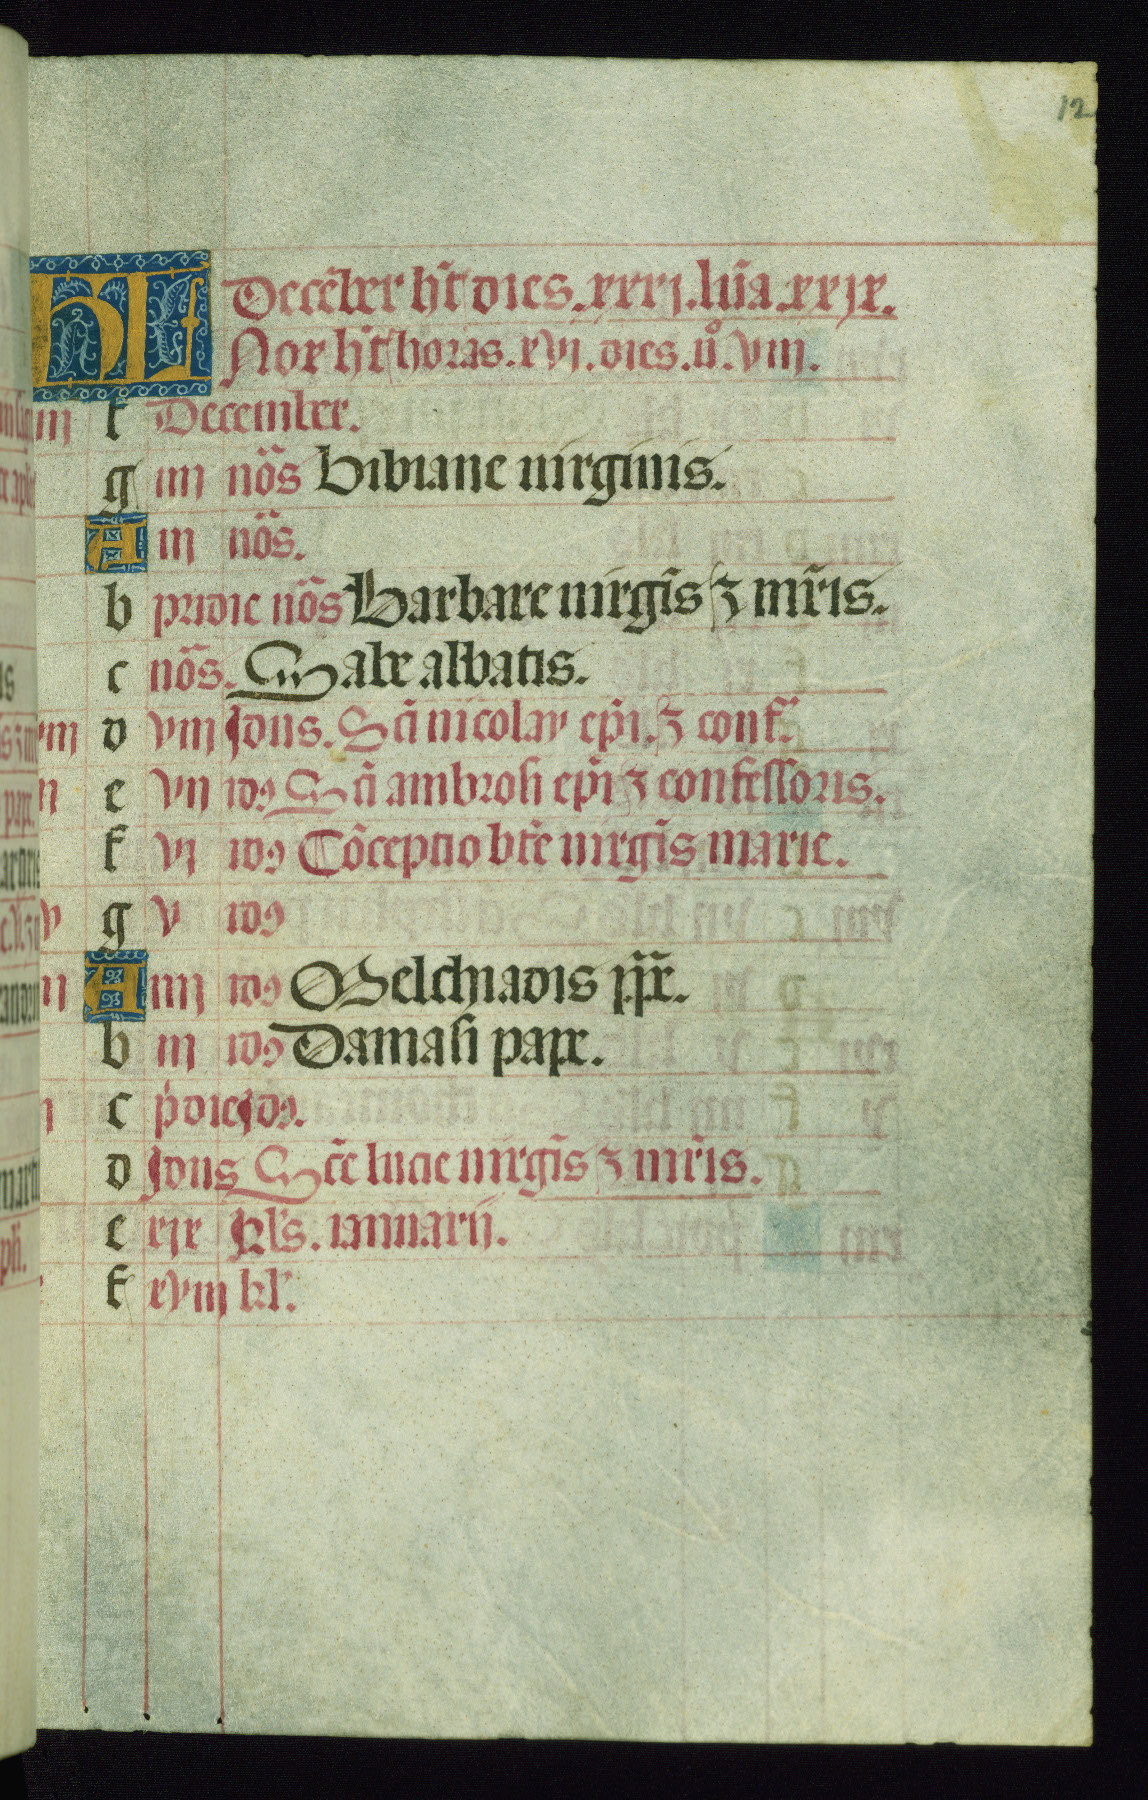 12
KL Decēber hīt dies .xxxj. lūa .xxjx.
Nox hīt horas .xvj. dies .ůo. viij.
iij f December.
g iiij nōs Bibiane virginis.
A iij nōs.
b pridie nōs Barbare virgīs ⁊ mr̄is.
c nōs. Sabe abbatis.
d viij Jdus. Scī nicolay epī. ⁊ conf.
e vij idꝰ Scī ambrosii epī ⁊ confessoris.
f vj idꝰ Cōceptio btē virgīs marie.
v g v idꝰ
A iiij idꝰ Melchiadis pp̄.
b iij idꝰ Damasi pape.
c pdie Jdꝰ.
d Jdus Scē lucie virgīs ⁊ mr̄is.
e xjx kls. ianuarij.
f xviij kl.